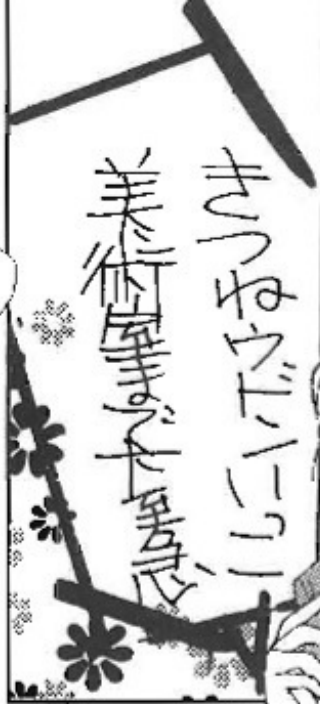 きつねウドンいっこ
美術室まで大至急